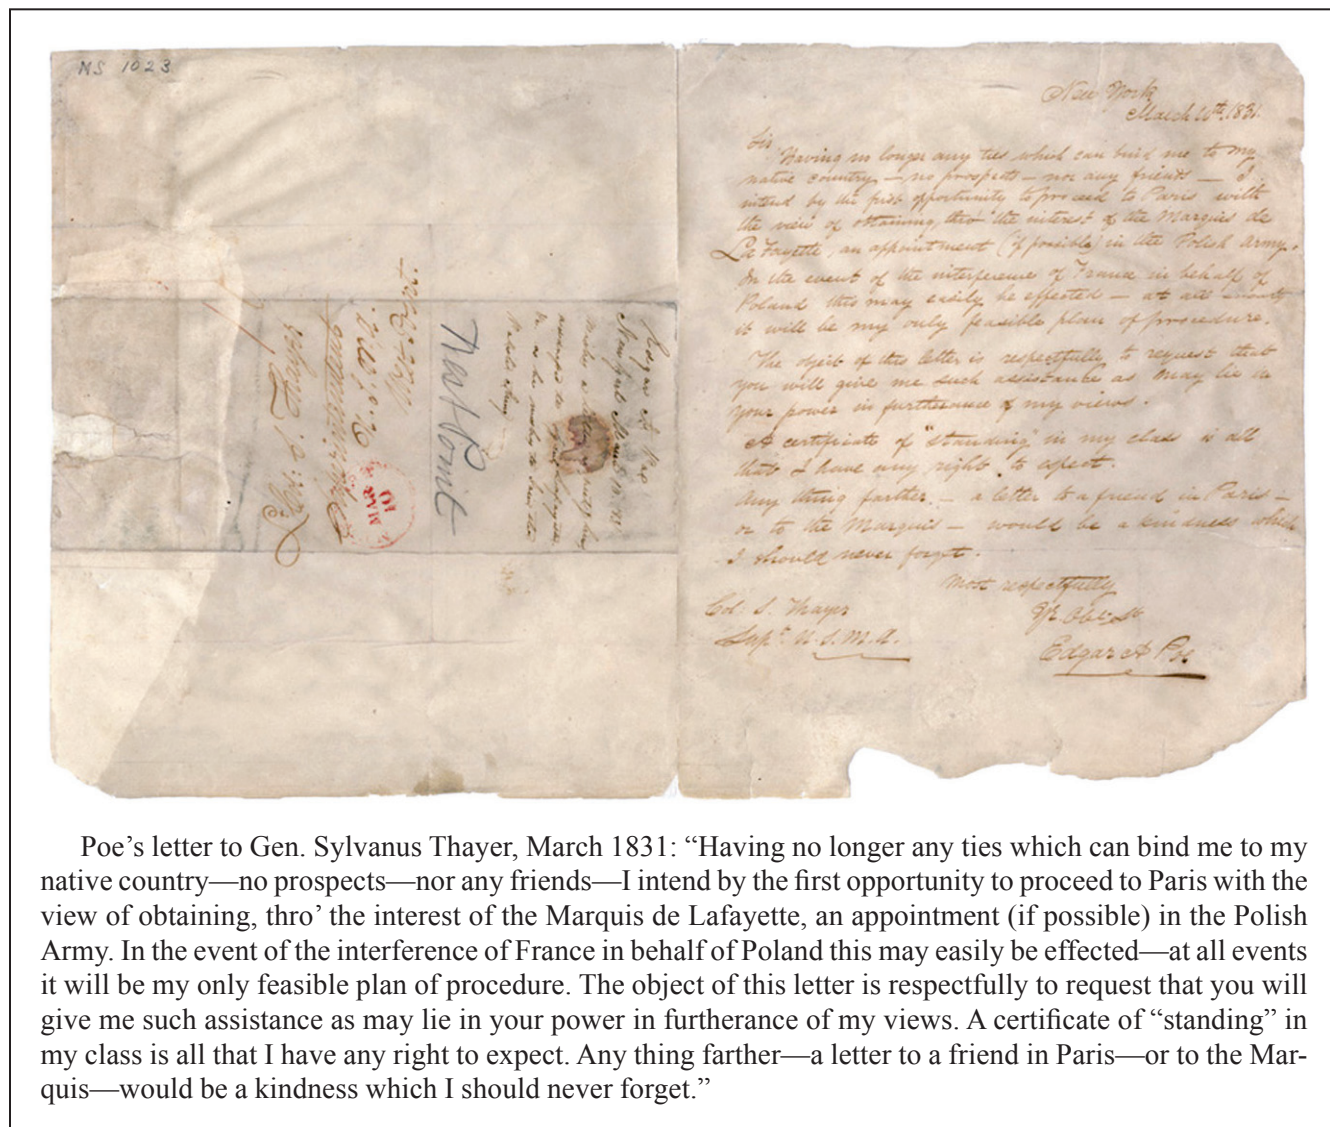 MS 1023
New York
March 10th. 1831.
Sir,
Having no longer any ties which can bind me to my
native country — no prospects — nor any friends — I
intend by the first opportunity to proceed to Paris with
the view of obtaining, thro' the interest of the Marquis de
La Fayette, an appointment (if possible) in the Polish Army.
In the event of the interference of France in behalf of
Poland this may easily be effected — at all events
it will be my only feasible plan of procedure.
The object of this letter is respectfully to request that
you will give me such assistance as may lie in
your power in furtherance of my views.
A certificate of "standing" in my class is all
that I have any right to expect.
Any thing farther — a letter to a friend in Paris —
or to the Marquis — would be a kindness which
I should never forget.
Most respectfully
Yr. Obt. St.
Edgar A Poe
Col: S. Thayer
Supt. U.S.M.A.
Edgar A. Poe
West Point
MAR
10
Col. S. Thayer
Poe's letter to Gen. Sylvanus Thayer, March 1831: “Having no longer any ties which can bind me to my
native country—no prospects—nor any friends—I intend by the first opportunity to proceed to Paris with the
view of obtaining, thro’ the interest of the Marquis de Lafayette, an appointment (if possible) in the Polish
Army. In the event of the interference of France in behalf of Poland this may easily be effected—at all events
it will be my only feasible plan of procedure. The object of this letter is respectfully to request that you will
give me such assistance as may lie in your power in furtherance of my views. A certificate of “standing” in
my class is all that I have any right to expect. Any thing farther—a letter to a friend in Paris—or to the Mar-
quis—would be a kindness which I should never forget.”